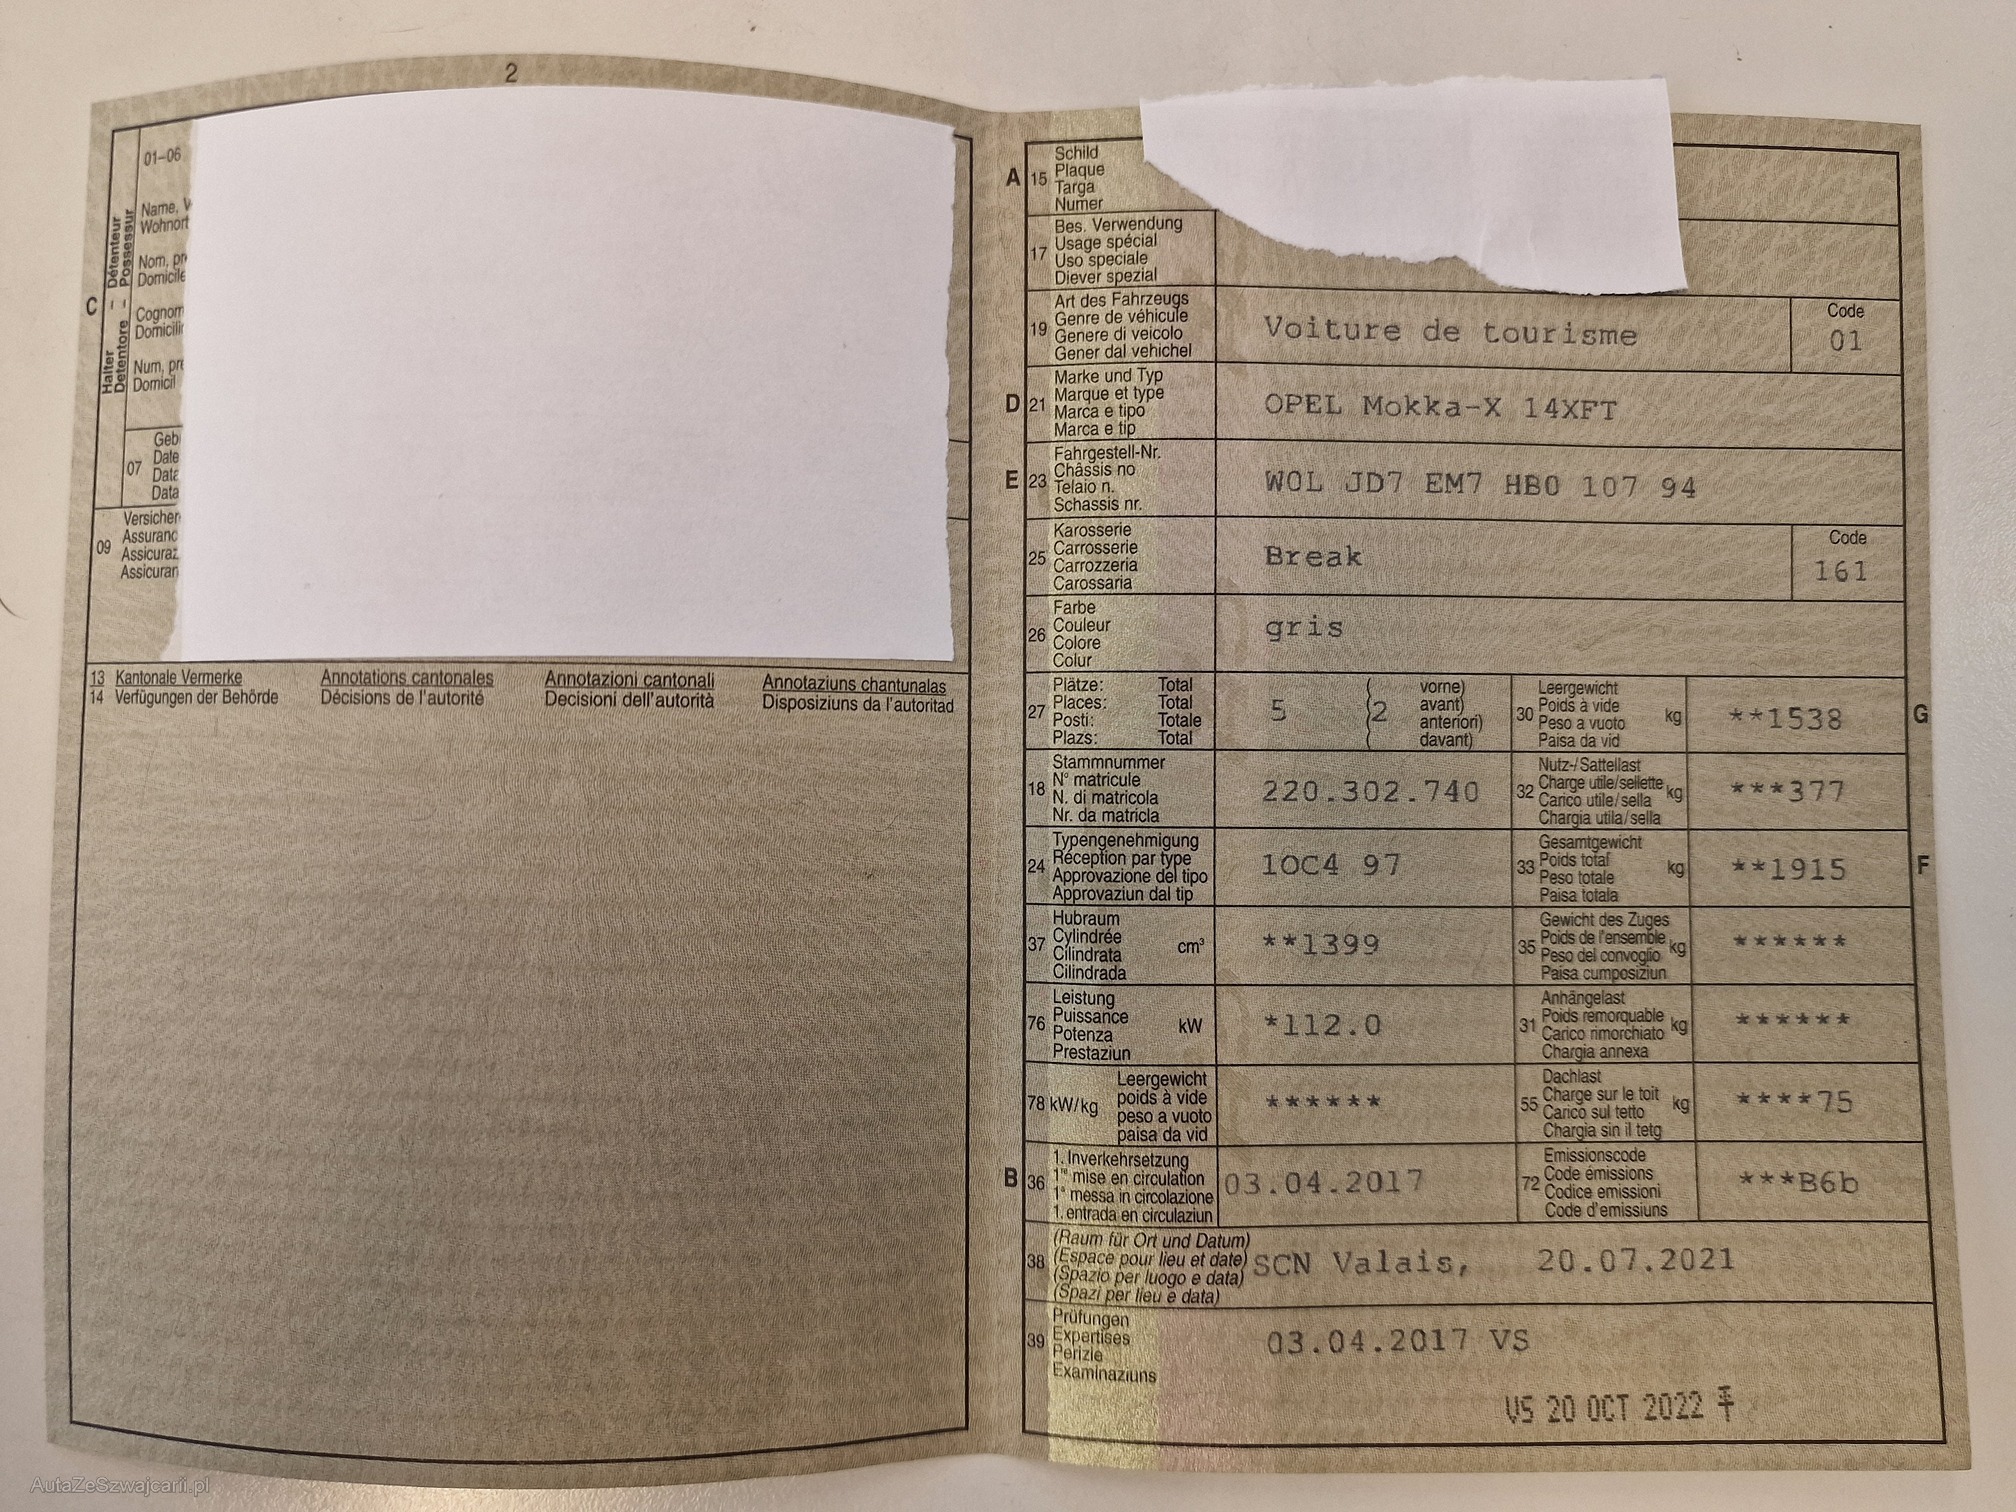 2
01–06
Name,
Wohnort
Nom,
Domicile
Cognom
Domicili
Num,
Domicil
C
Halter – Détenteur
Detentore – Possessur
07
Geb
Date
Data
Data
09
Versicher
Assuranc
Assicuraz
Assicuran
13 Kantonale Vermerke Annotations cantonales Annotazioni cantonali Annotaziuns chantunalas
14 Verfügungen der Behörde Décisions de l'autorité Decisioni dell'autorità Disposiziuns da l'autoritad
A 15
Schild
Plaque
Targa
Numer
17
Bes. Verwendung
Usage spécial
Uso speciale
Diever spezial
19
Art des Fahrzeugs
Genre de véhicule
Genere di veicolo
Gener dal vehichel
Voiture de tourisme
Code
01
D 21
Marke und Typ
Marque et type
Marca e tipo
Marca e tip
OPEL Mokka-X 14XFT
E 23
Fahrgestell-Nr.
Châssis no
Telaio n.
Schassis nr.
WOL JD7 EM7 HB0 107 94
25
Karosserie
Carrosserie
Carrozzeria
Carossaria
Break
Code
161
26
Farbe
Couleur
Colore
Colur
gris
27
Plätze: Total
Places: Total
Posti: Totale
Plazs: Total
5 (2
vorne)
avant)
anteriori)
davant)
30
Leergewicht
Poids à vide
Peso a vuoto
Paisa da vid
kg
**1538
G
18
Stammnummer
N° matricule
N. di matricola
Nr. da matricla
220.302.740
32
Nutz-/Sattellast
Charge utile/sellette
Carico utile/sella
Chargia utila/sella
kg
***377
24
Typengenehmigung
Réception par type
Approvazione del tipo
Approvaziun dal tip
1OC4 97
33
Gesamtgewicht
Poids total
Peso totale
Paisa totala
kg
**1915
F
37
Hubraum
Cylindrée
Cilindrata
Cilindrada
cm³
**1399
35
Gewicht des Zuges
Poids de l'ensemble
Peso del convoglio
Paisa cumposiziun
kg
******
76
Leistung
Puissance
Potenza
Prestaziun
kW
*112.0
31
Anhängelast
Poids remorquable
Carico rimorchiato
Chargia annexa
kg
******
78 kW/kg
Leergewicht
poids à vide
peso a vuoto
paisa da vid
******
55
Dachlast
Charge sur le toit
Carico sul tetto
Chargia sin il tetg
kg
****75
B 36
1. Inverkehrsetzung
1re mise en circulation
1a messa in circolazione
1. entrada en circulaziun
03.04.2017
72
Emissionscode
Code émissions
Codice emissioni
Code d'emissiuns
***B6b
38
(Raum für Ort und Datum)
(Espace pour lieu et date)
(Spazio per luogo e data)
(Spazi per lieu e data)
SCN Valais, 20.07.2021
39
Prüfungen
Expertises
Perizie
Examinaziuns
03.04.2017 VS
VS 20 OCT 2022
AutaZeSzwajcarii.pl